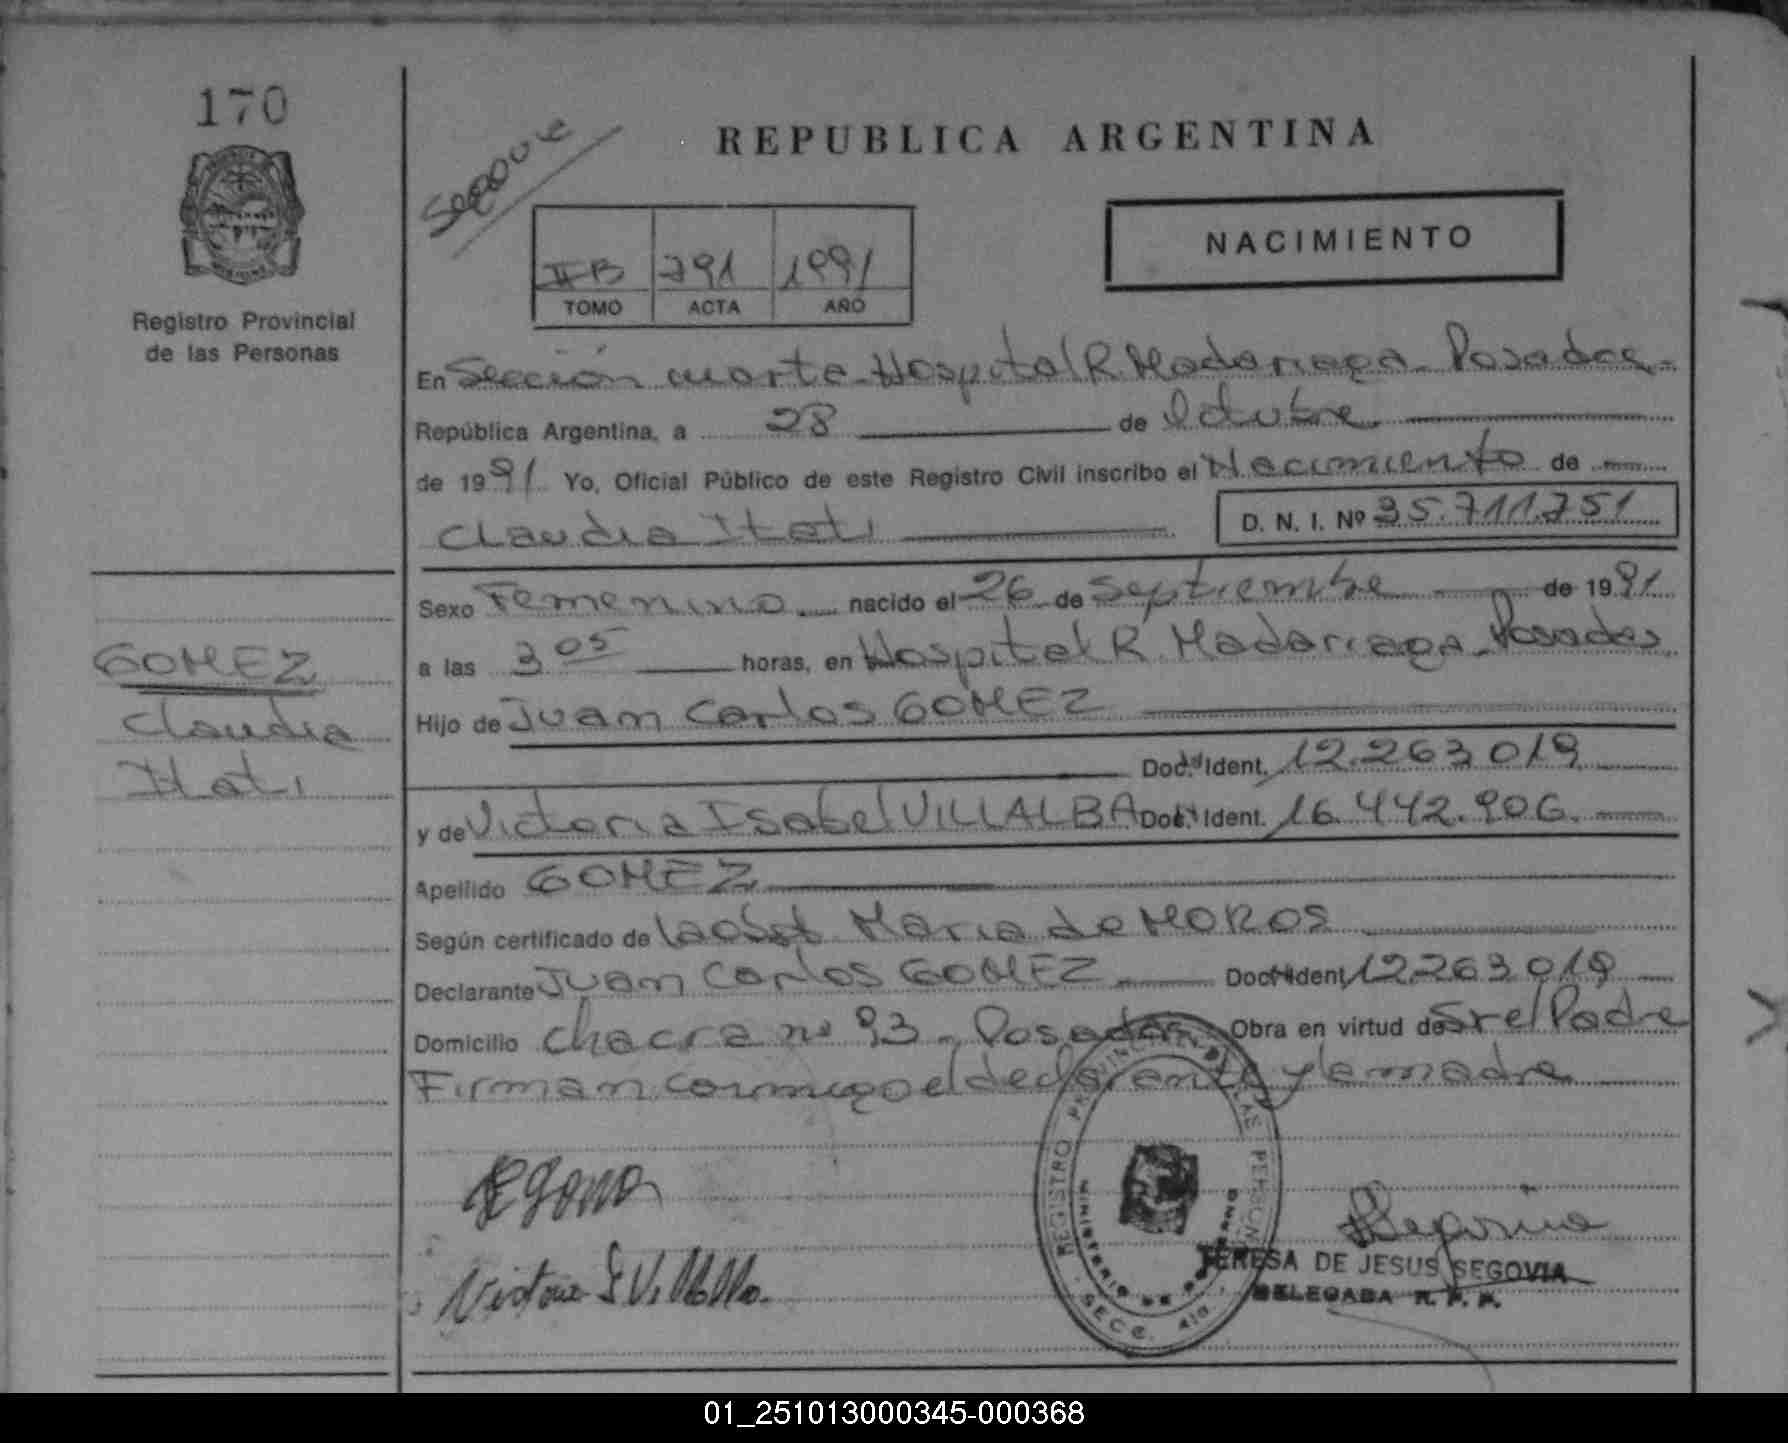 170
Registro Provincial
de las Personas
REPUBLICA ARGENTINA
NACIMIENTO
II-B 791 1991
TOMO ACTA AÑO
En Sección cuarta-Hospital R. Madariaga-Posadas-
República Argentina, a 28 de Octubre
de 1991 Yo, Oficial Público de este Registro Civil inscribo el Nacimiento de
Claudia Itati D. N. I. Nº 35.711.751
Sexo Femenino nacido el 26 de Septiembre de 1991
a las 3 05 horas, en Hospital R. Madariaga-Posadas
Hijo de Juan Carlos GOMEZ
Doc. Ident. 12.263.019
y de Victoria Isabel VILLALBA Doc. Ident. 16.442.906.
Apellido GOMEZ
Según certificado de la Obst Maria de MOROS
Declarante Juan Carlos GOMEZ Doc. Ident. 12.263.019
Domicilio Chacra nº 93-Posadas Obra en virtud de Sr el Padre
Firman conmigo el declarante y la madre
GOMEZ
Claudia
Itati
Victoria I. Villalba
REGISTRO PROVINCIAL DE LAS PERSONAS
MINISTERIO DE GOBIERNO
SECC. 4ta.
TERESA DE JESUS SEGOVIA
DELEGADA R. P. P.
01_251013000345-000368